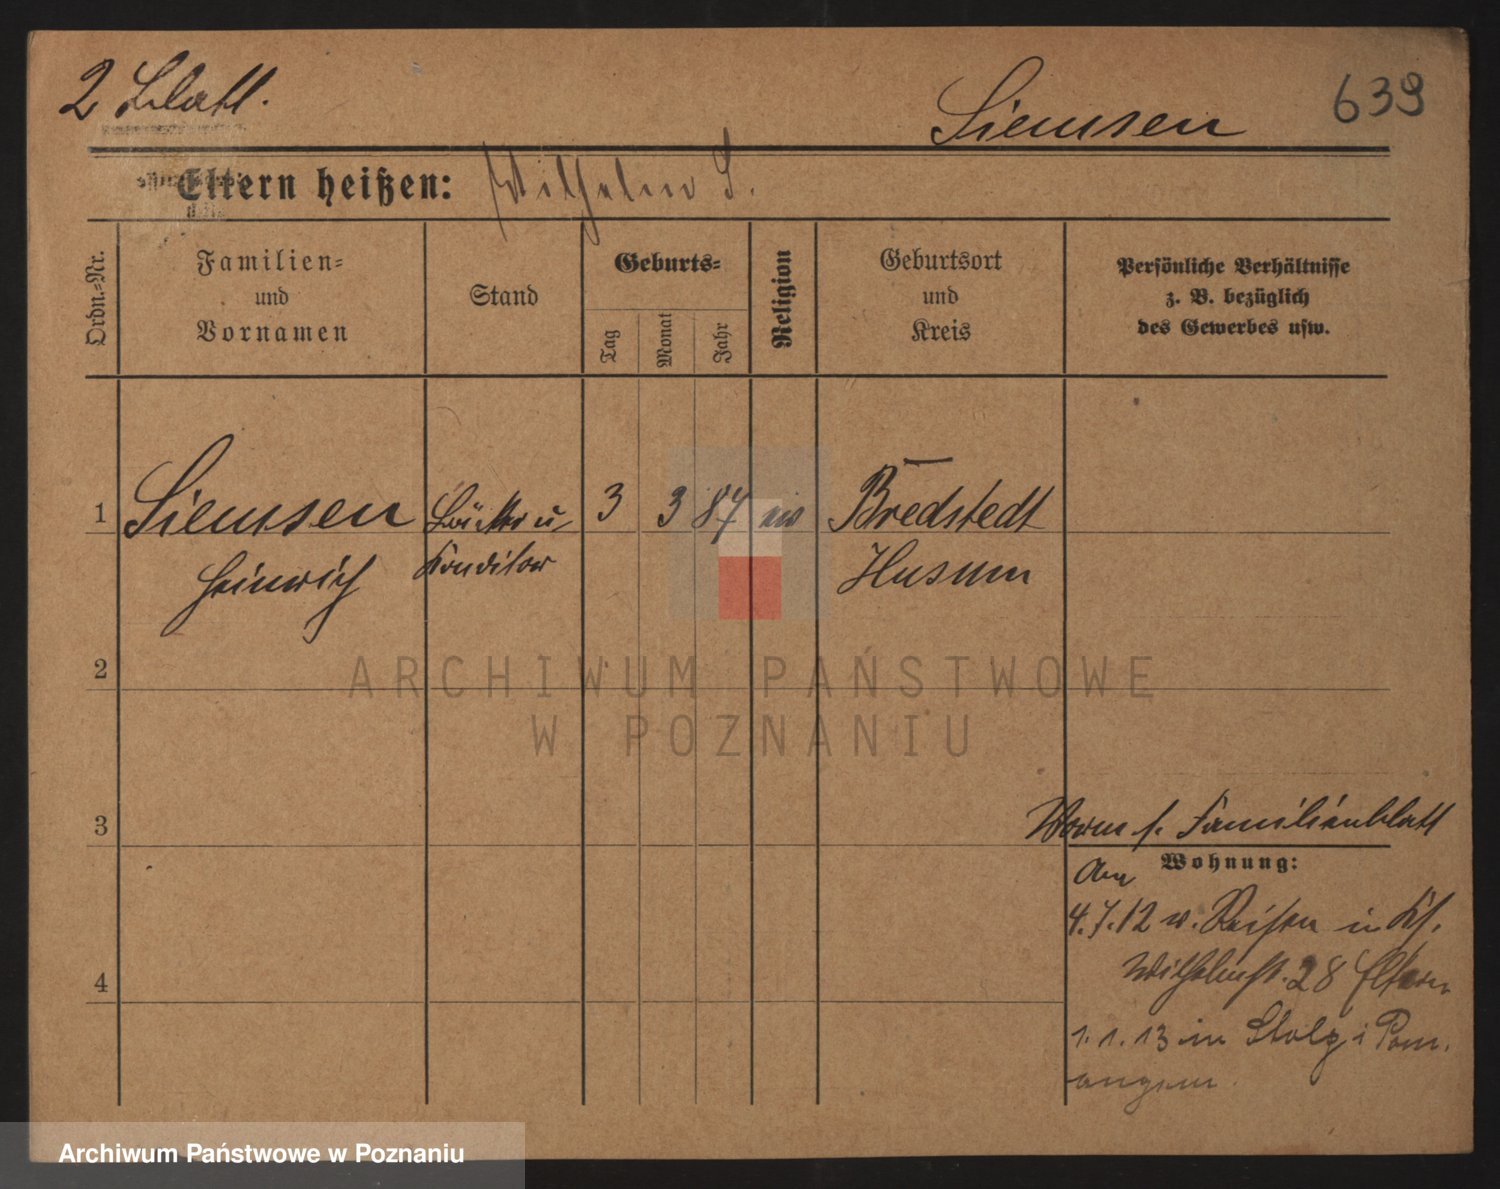 2 Blatt.
Siemsen
639
Eltern heißen: Wilhelm S.
Ordn.-Nr.
Familien- und Vornamen
Stand
Geburts-
Tag
Monat
Jahr
Religion
Geburtsort und Kreis
Persönliche Verhältnisse z. B. bezüglich des Gewerbes usw.
1 Siemsen Bäcker u 3 3 87 Bredstedt
Heinrich Konditor Husum
2
3
Familienblatt
Wohnung:
Am
4.7.12 v. Reisen in
Wilhelmst. 28 Eltern
1.1.13 in Stolp i Pom.
angem
4
ARCHIWUM PAŃSTWOWE
W POZNANIU
Archiwum Państwowe w Poznaniu